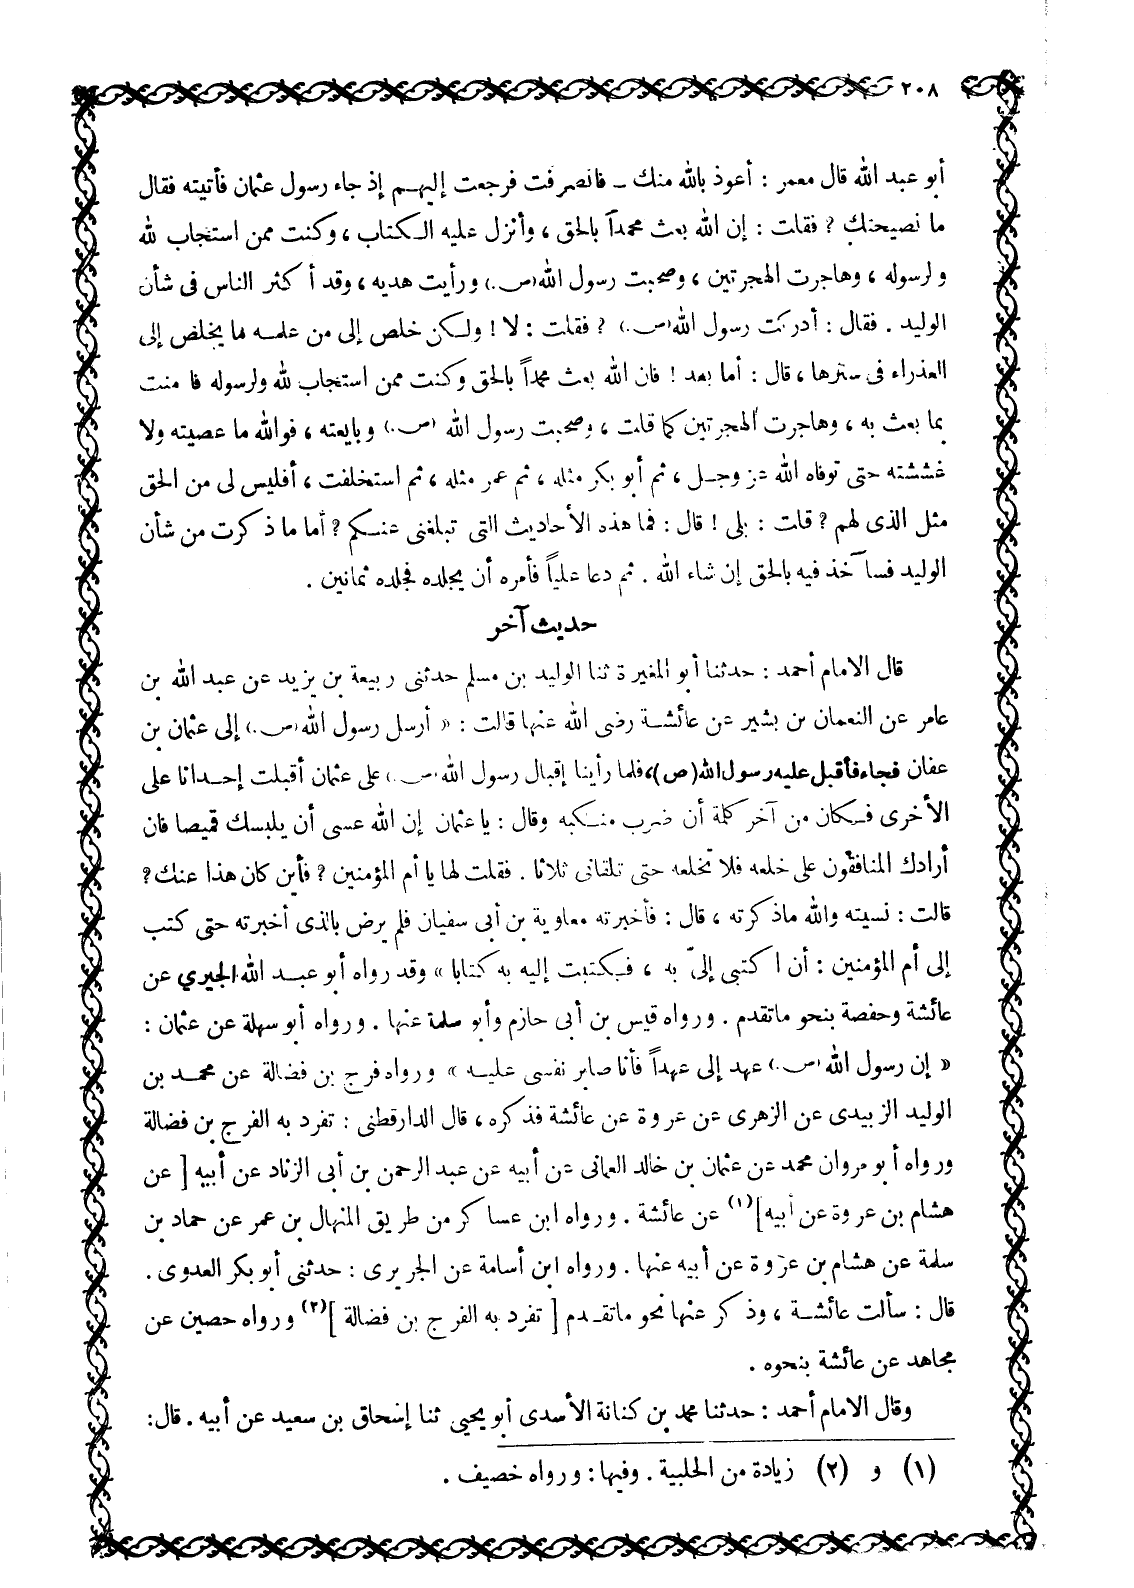 ٢٠٨
أبو عبد الله قال معمر : أعوذ بالله منك ـ فانصرفت فرجعت إليهم إذ جاء رسول عثمان فأتيته فقال
ما نصيحتك ? فقلت : إن الله بعث محمداً بالحق ، وأنزل عليه الكتاب ، وكنت ممن استجاب لله
ولرسوله ، وهاجرت الهجرتين ، وصحبت رسول الله (ص.) ورأيت هديه ، وقد أكثر الناس فى شأن
الوليد . فقال : أدركت رسول الله (ص.) ? فقلت : لا ! ولكن خلص إلى من علمه ما يخلص إلى
العذراء فى سترها ، قال : أما بعد ! فان الله بعث محمداً بالحق وكنت ممن استجاب لله ولرسوله فا منت
بما بعث به ، وهاجرت الهجرتين كما قلت ، وصحبت رسول الله (ص.) وبايعته ، فوالله ما عصيته ولا
غششته حتى توفاه الله عز وجل ، ثم أبو بكر مثله ، ثم عمر مثله ، ثم استخلفت ، أفليس لى من الحق
مثل الذى لهم ? قلت : بلى ! قال : فما هذه الأحاديث التى تبلغنى عنكم ? أما ما ذكرت من شأن
الوليد فسآخذ فيه بالحق إن شاء الله . ثم دعا علياً فأمره أن يجلده فجلده ثمانين .
حديث آخر
قال الامام أحمد : حدثنا أبو المغيرة ثنا الوليد بن مسلم حدثنى ربيعة بن يزيد عن عبد الله بن
عامر عن النعمان بن بشير عن عائشة رضى الله عنها قالت : « أرسل رسول الله (ص.) إلى عثمان بن
عفان فجاء فأقبل عليه رسول الله (ص)، فلما رأينا إقبال رسول الله (ص.) على عثمان أقبلت إحدانا على
الأخرى فكان من آخر كلمة أن ضرب منكبه وقال : يا عثمان إن الله عسى أن يلبسك قميصا فان
أرادك المنافقون على خلعه فلا تخلعه حتى تلقانى ثلاثا . فقلت لها يا أم المؤمنين ? فأين كان هذا عنك ?
قالت : نسيته والله ماذكرته ، قال : فأخبرته معاوية بن أبى سفيان فلم يرض بالذى أخبرته حتى كتب
إلى أم المؤمنين : أن اكتبى إلىّ به ، فكتبت إليه به كتابا » وقد رواه أبو عبد الله الجيري عن
عائشة وحفصة بنحو ماتقدم . ورواه قيس بن أبى حازم وأبو سلمة عنها . ورواه أبو سهلة عن عثمان :
« إن رسول الله (ص.) عهد إلى عهداً فأنا صابر نفسى عليه » ورواه فرج بن فضالة عن محمد بن
الوليد الزبيدى عن الزهرى عن عروة عن عائشة فذكره ، قال الدارقطنى : تفرد به الفرج بن فضالة
ورواه أبو مروان محمد عن عثمان بن خالد العمانى عن أبيه عن عبد الرحمن بن أبى الزناد عن أبيه [ عن
هشام بن عروة عن أبيه ](١) عن عائشة . ورواه ابن عساكر من طريق المنهال بن عمر عن حماد بن
سلمة عن هشام بن عروة عن أبيه عنها . ورواه ابن أسامة عن الجريرى : حدثنى أبو بكر العدوى .
قال : سألت عائشة ، وذكر عنها نحو ماتقدم [ تفرد به الفرج بن فضالة ](٢) ورواه حصين عن
مجاهد عن عائشة بنحوه .
وقال الامام أحمد : حدثنا محمد بن كنانة الأسدى أبو يحيى ثنا إسحاق بن سعيد عن أبيه . قال:
(١) و (٢) زيادة من الحلبية . وفيها : ورواه خصيف .